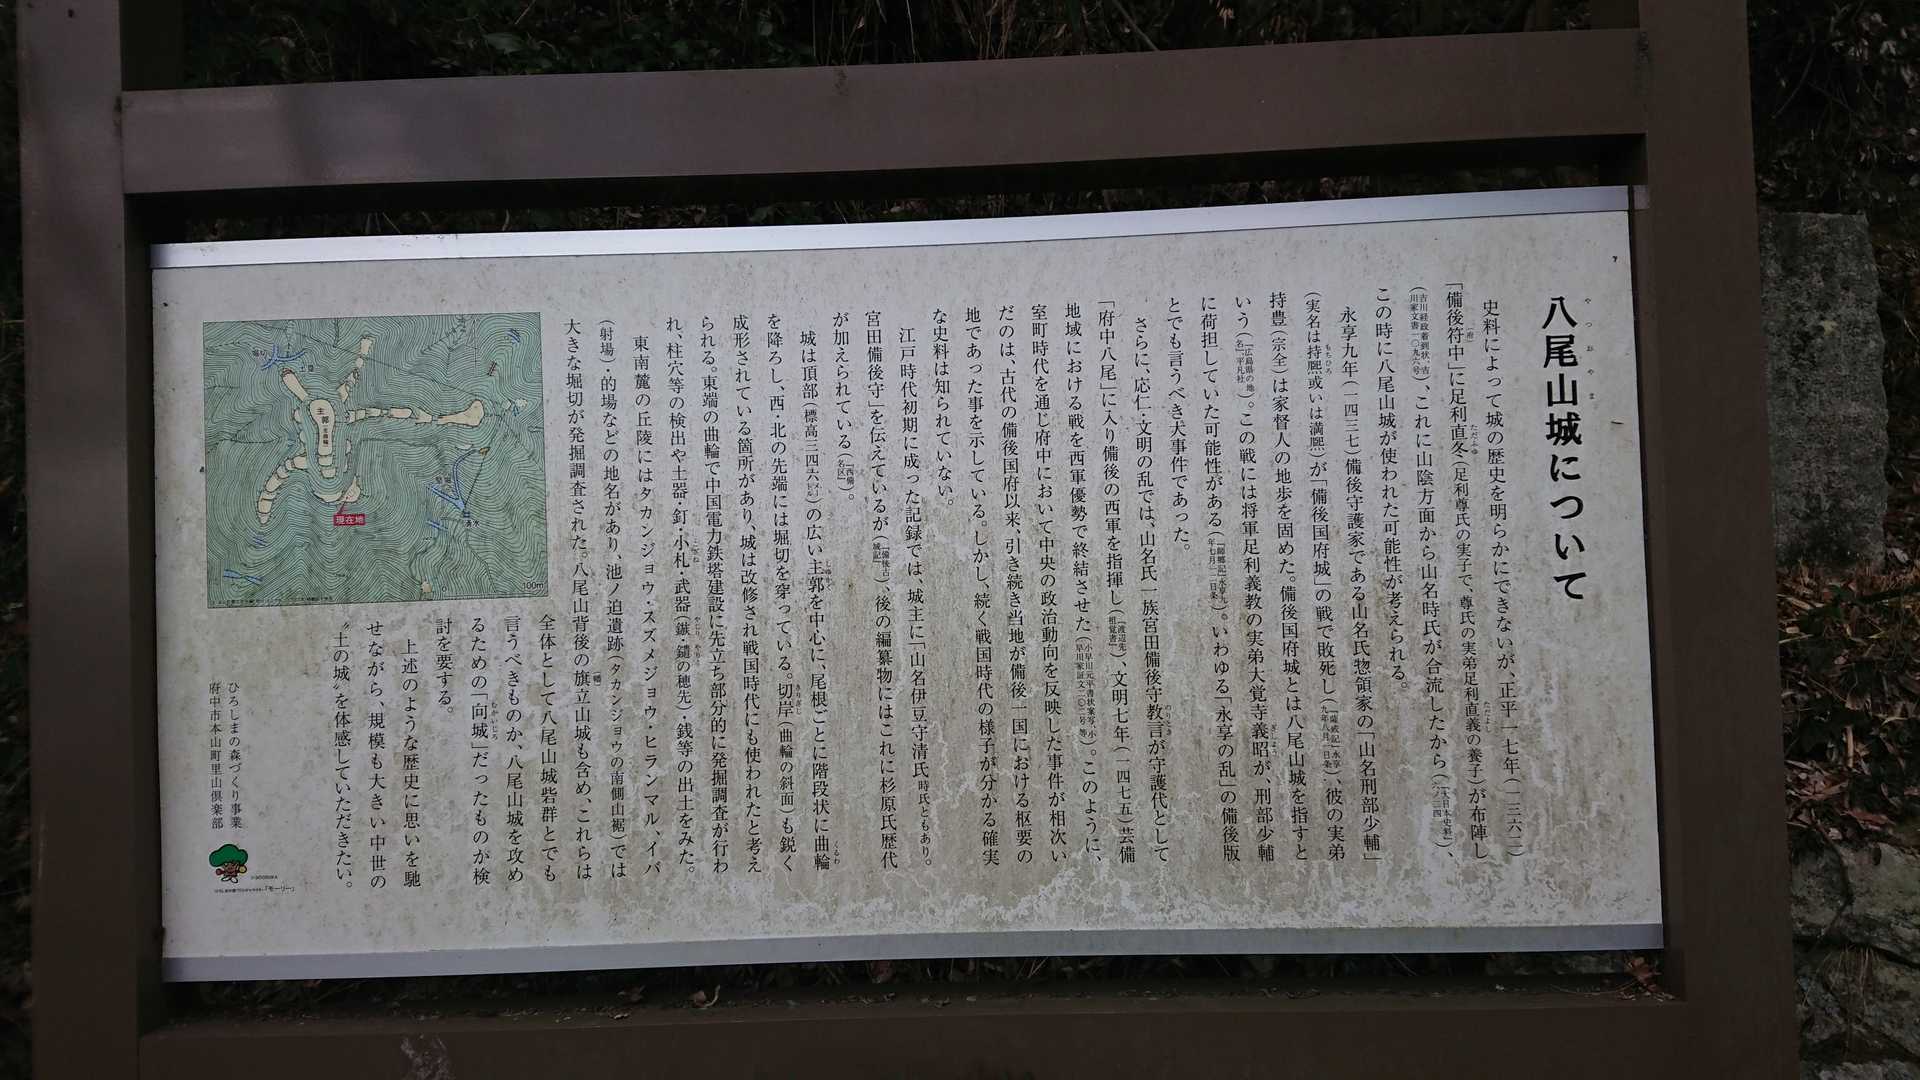 八尾山城について
やつおやま
史料によって城の歴史を明らかにできないが、正平一七年(一三六二)
「備後符中」に足利直冬(足利尊氏の実子で、尊氏の実弟足利直義の養子)が布陣し
(府)
ただふゆ
ただよし
(吉川経政着到状、吉川家文書一〇九六号)、これに山陰方面から山名時氏が合流したから(『大日本史料』六-二四)、
この時に八尾山城が使われた可能性が考えられる。
永享九年(一四三七)備後守護家である山名氏惣領家の「山名刑部少輔」
(実名は持熈或いは満熈)が「備後国府城」の戦で敗死し(『薩戒記』永享九年八月一日条)、彼の実弟
もちひろ
持豊(宗全)は家督人の地歩を固めた。備後国府城とは八尾山城を指すと
いう(『広島県の地名』平凡社)。この戦には将軍足利義教の実弟大覚寺義昭が、刑部少輔
ぎしょう
に荷担していた可能性がある(『師郷記』永享九年七月二二日条)。いわゆる「永享の乱」の備後版
とでも言うべき大事件であった。
さらに、応仁・文明の乱では、山名氏一族宮田備後守教言が守護代として
のりとき
「府中八尾」に入り備後の西軍を指揮し(『渡辺先祖覚書』)、文明七年(一四七五)芸備
地域における戦を西軍優勢で終結させた(小早川元平書状案写、小早川家証文二〇二号等)。このように、
室町時代を通じ府中において中央の政治動向を反映した事件が相次い
だのは、古代の備後国府以来、引き続き当地が備後一国における枢要の
地であった事を示している。しかし、続く戦国時代の様子が分かる確実
な史料は知られていない。
江戸時代初期に成った記録では、城主に「山名伊豆守清氏 時氏ともあり。
宮田備後守」を伝えているが(『備後古城記』)、後の編纂物にはこれに杉原氏歴代
が加えられている(『西備名区』)。
城は頂部(標高三四六㍍)の広い主郭を中心に、尾根ごとに階段状に曲輪
しゅかく
くるわ
を降ろし、西・北の先端には堀切を穿っている。切岸(曲輪の斜面)も鋭く
きりぎし
成形されている箇所があり、城は改修され戦国時代にも使われたと考え
られる。東端の曲輪で中国電力鉄塔建設に先立ち部分的に発掘調査が行わ
れ、柱穴等の検出や土器・釘・小札・武器(鏃・鑓の穂先)・銭等の出土をみた。
こざね
やじり
やり
東南麓の丘陵にはタカンジョウ・スズメジョウ・ヒランマル、イバ
(射場)・的場などの地名があり、池ノ迫遺跡(タカンジョウの南側山裾)では
大きな堀切が発掘調査された。八尾山背後の旗立山城も含め、これらは
(幡)
全体として八尾山城砦群とでも
言うべきものか、八尾山城を攻め
るための「向城」だったものか検
むかいじろ
討を要する。
上述のような歴史に思いを馳
せながら、規模も大きい中世の
〝土の城〟を体感していただきたい。
ひろしまの森づくり事業
府中市本山町里山倶楽部
堀切
土塁
主郭
現在地
湧水
100m
「モーリー」